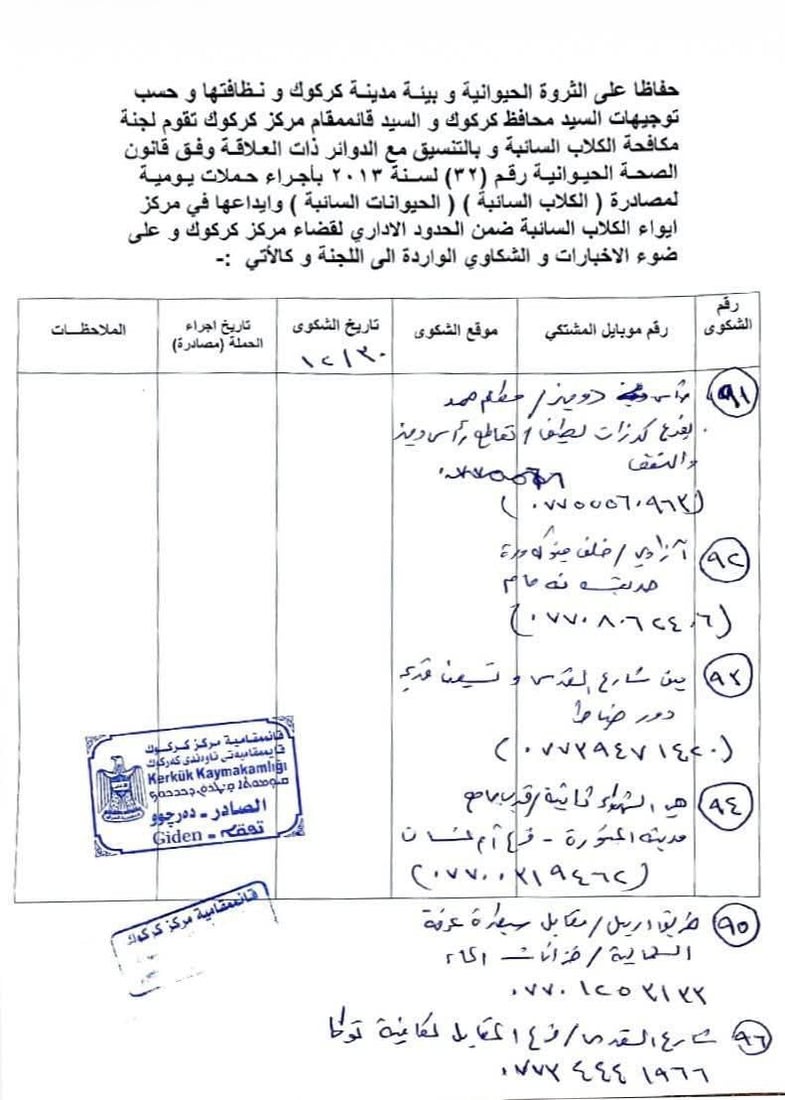 حفاظا على الثروة الحيوانية و بيئة مدينة كركوك و نظافتها و حسب
توجيهات السيد محافظ كركوك و السيد قائممقام مركز كركوك تقوم لجنة
مكافحة الكلاب السائبة و بالتنسيق مع الدوائر ذات العلاقة وفق قانون
الصحة الحيوانية رقم (٣٢) لسنة ٢٠١٣ بأجراء حملات يومية
لمصادرة ( الكلاب السائبة ) ( الحيوانات السائبة ) وايداعها في مركز
ايواء الكلاب السائبة ضمن الحدود الاداري لقضاء مركز كركوك و على
ضوء الاخبارات و الشكاوي الواردة الى اللجنة و كالأتي :-
رقم الشكوى
رقم موبايل المشتكي
موقع الشكوى
تاريخ الشكوى
١٢/٣٠
تاريخ اجراء الحملة (مصادرة)
الملاحظات
٩١ دوميز /
تقاطع رأس دوميز
(٠٧٧٥٥٥٦٠٩٦٣)
٩٢ آزادي / خلف
حديقة
(٠٧٧٠٨٠٦٢٤٠٦)
٩٣ بين شارع القدس و تسعين
دور ضباط
(٠٧٧٣٩٤٧١٤٢٠)
٩٤ حي الشهداء ثانية / قرب جامع
مدينة المنورة - فرع
(٠٧٧٠٠٣١٩٤٦٢)
٩٥ طريق اربيل / مقابل سيطرة عرفة
الشمالية / خزانات
٠٧٧٠١٢٥٣١٣٣
٩٦ شارع القدس / فرع المقابل
٠٧٧٣ ٤٤٤ ١٩٦٦
قائممقامية مركز كركوك
قایمقامیەتی ناوەندی کەرکوک
Kerkük Kaymakamlığı
الصادر - دەرچوو
Giden -
قائممقامية مركز كركوك